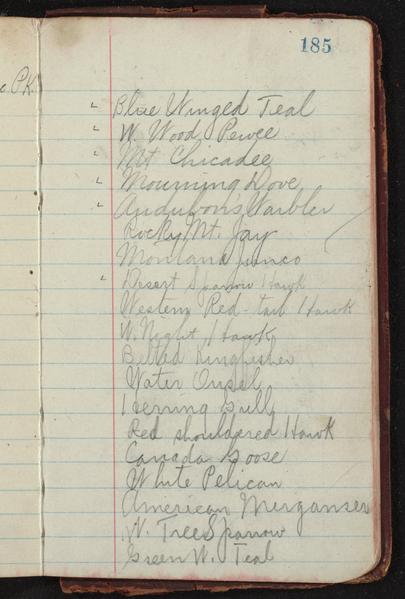 185
c. P.K.
Blue Winged Teal
W. Wood Pewee
Mt Chicadee
Mourning Dove
Audubons Warbler
Rocky Mt. Jay
Montana Junco
Desert Sparrow Hawk
Western Red-tail Hawk
W. Night Hawk
Belted Kingfisher
Water Ousel
Herring Gull
Red shouldered Hawk
Canada Goose
White Pelican
American Merganser
W. Tree Sparrow
Green W. Teal